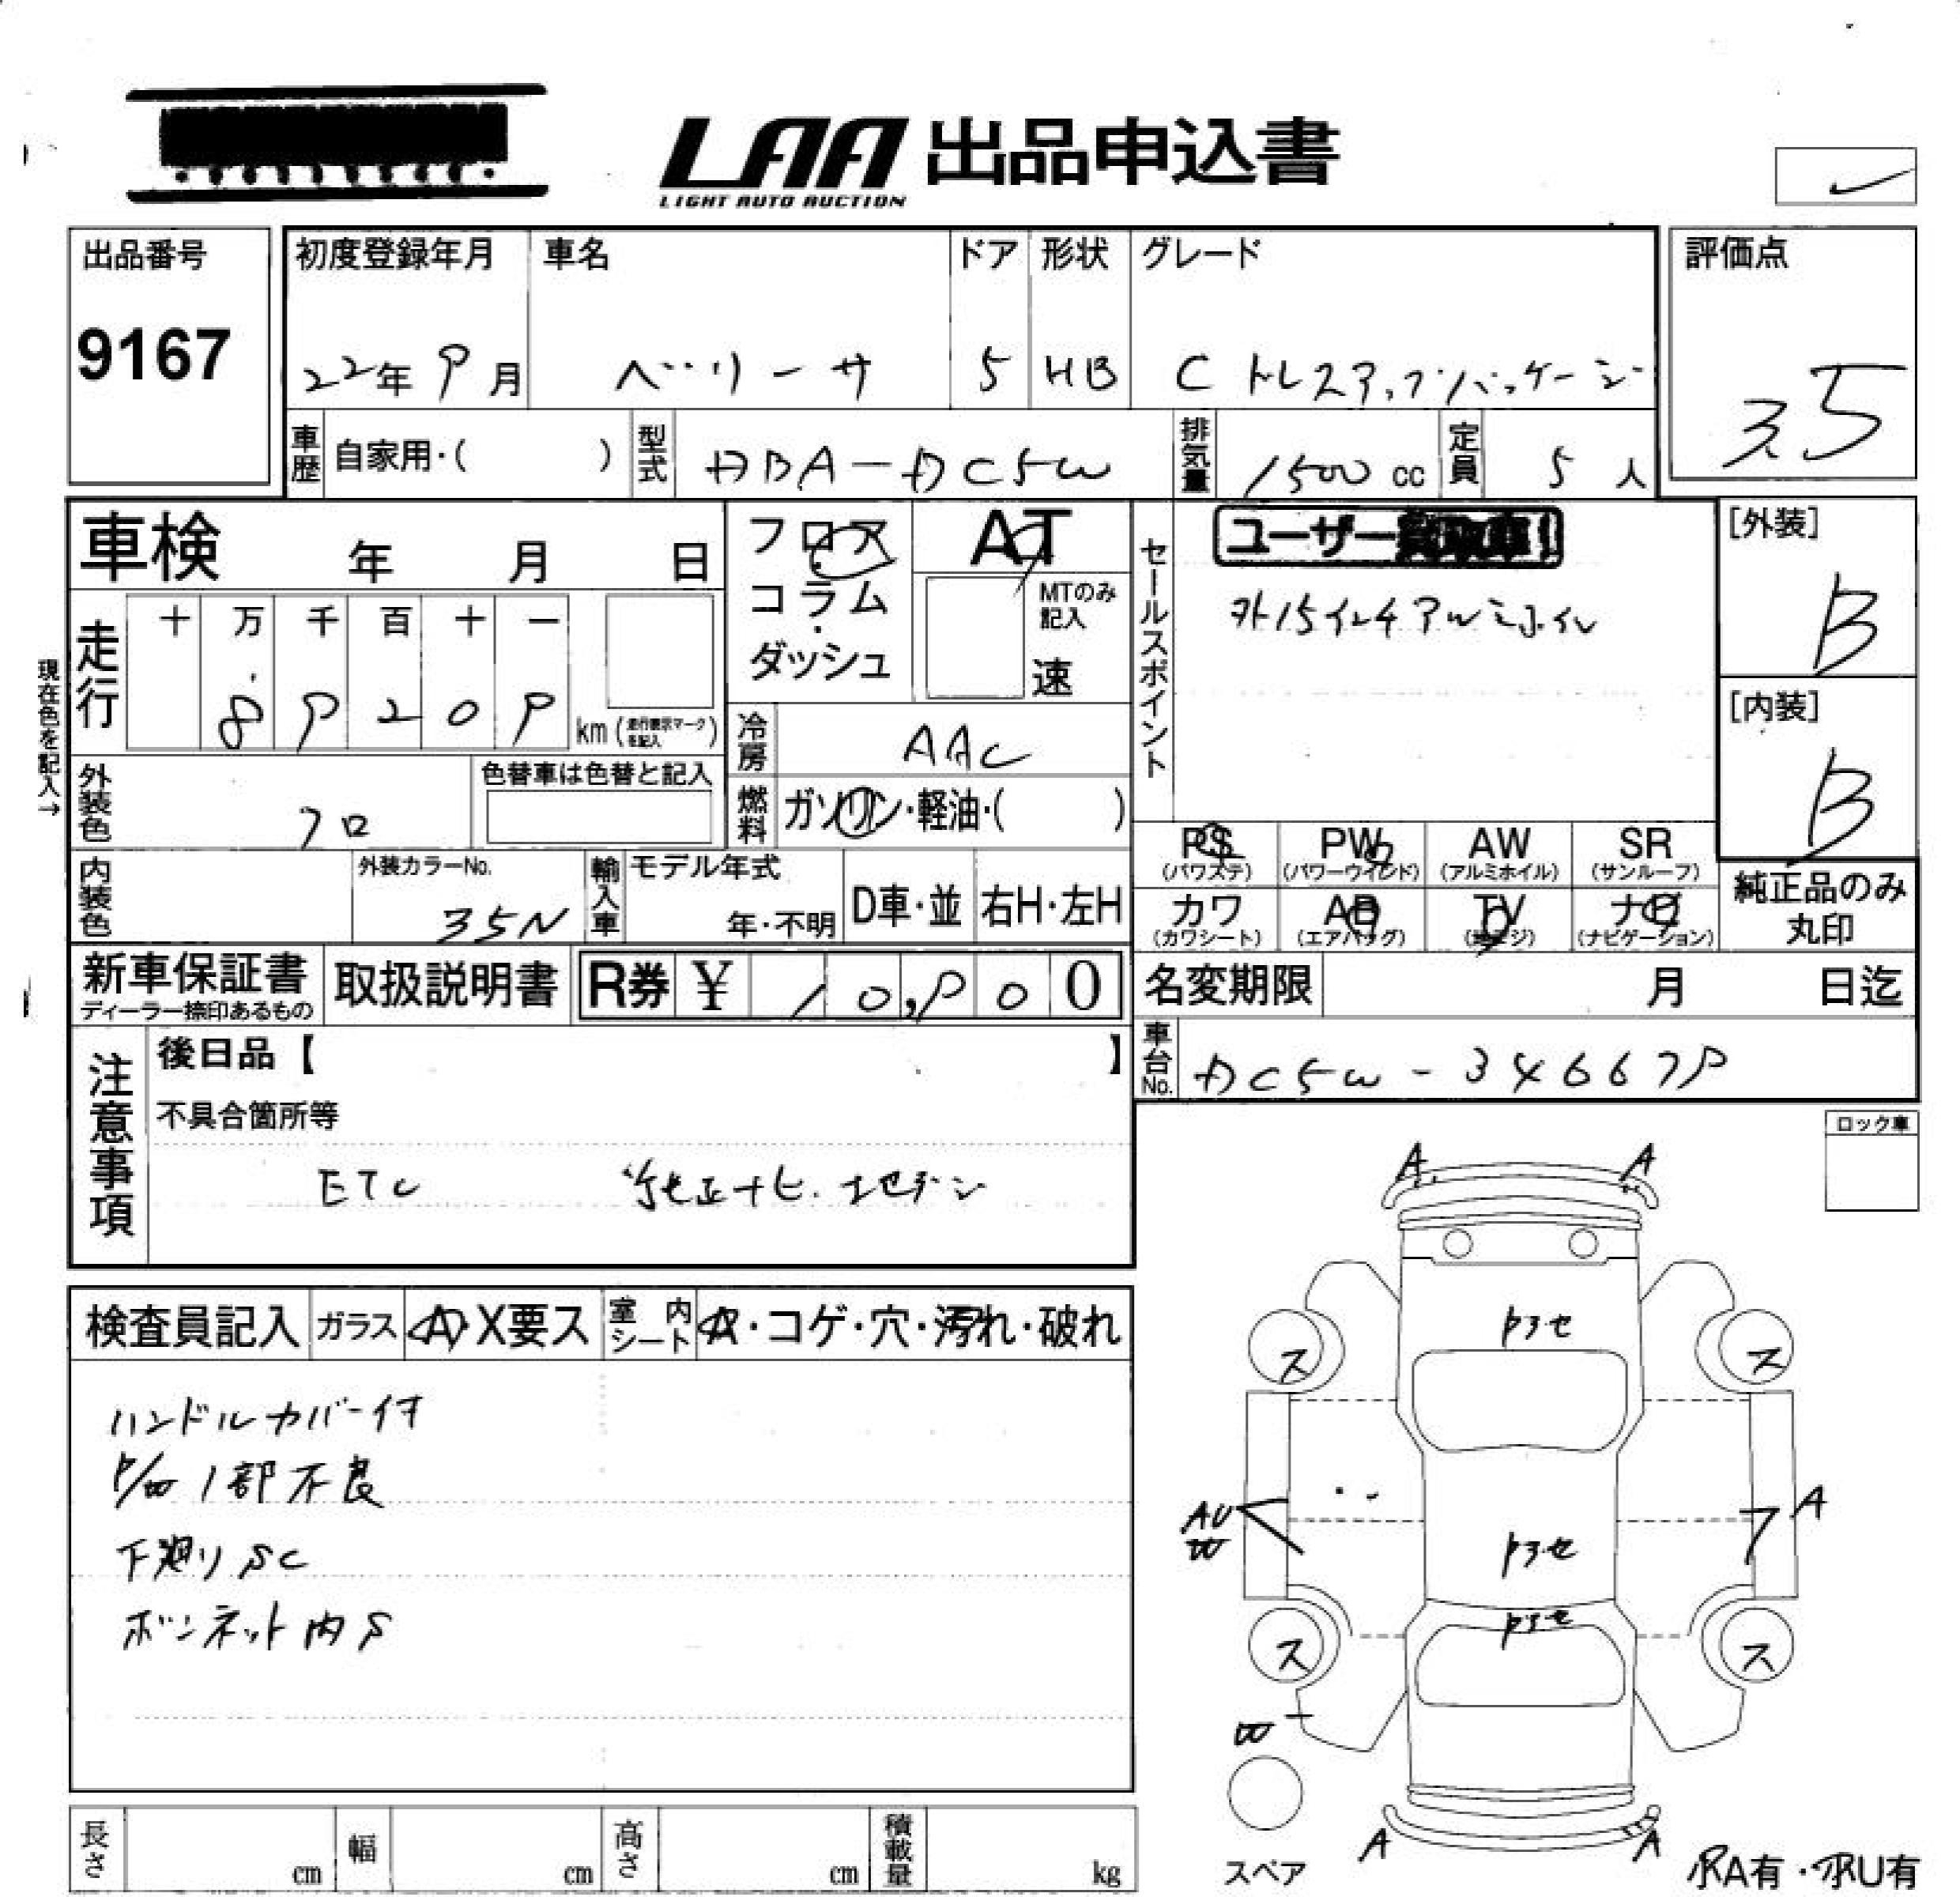 LAA 出品申込書
LIGHT AUTO AUCTION
出品番号
9167
初度登録年月
22年 9月
車名
ベリーサ
ドア
5
形状
HB
グレード
C ドレスアップパッケージ
評価点
3.5
車歴 自家用・( )
型式 DBA-DC5W
排気量 1500 cc
定員 5 人
車検 年 月 日
フロア
コラム
ダッシュ
AT
MTのみ
記入
速
セールスポイント
ユーザー買取車!
外15インチアルミホイル
[外装]
B
[内装]
B
現在色を記入→
走行
十 万 千 百 十 一
8 9 2 0 9 km (走行表示マークを記入)
冷房 AAC
燃料 ガソリン・軽油・( )
外装色 クロ
色替車は色替と記入
内装色
外装カラーNo.
35N
輸入車
モデル年式
年・不明
D車・並
右H・左H
PS (パワステ)
PW (パワーウインド)
AW (アルミホイル)
SR (サンルーフ)
カワ (カワシート)
AB (エアバッグ)
TV
ナビ (ナビゲーション)
純正品のみ
丸印
新車保証書
ディーラー捺印あるもの
取扱説明書
R券 ¥ 10,900
名変期限 月 日迄
車台No. DC5W-346679
注意事項
後日品【 】
不具合箇所等
ETC 純正ナビ.地デジ
ロック車
検査員記入
ガラス Ⓐ・X要ス
室内シート
・コゲ・穴・汚れ・破れ
ハンドルカバー付
P/W 1部不良
下廻りSC
ボンネット内S
A A
トソーセ
ス ス
AU
W
A
トソーセ
トソーセ
ス ス
W
スペア
A A
爪A有・爪U有
長さ cm
幅 cm
高さ cm
積載量 kg